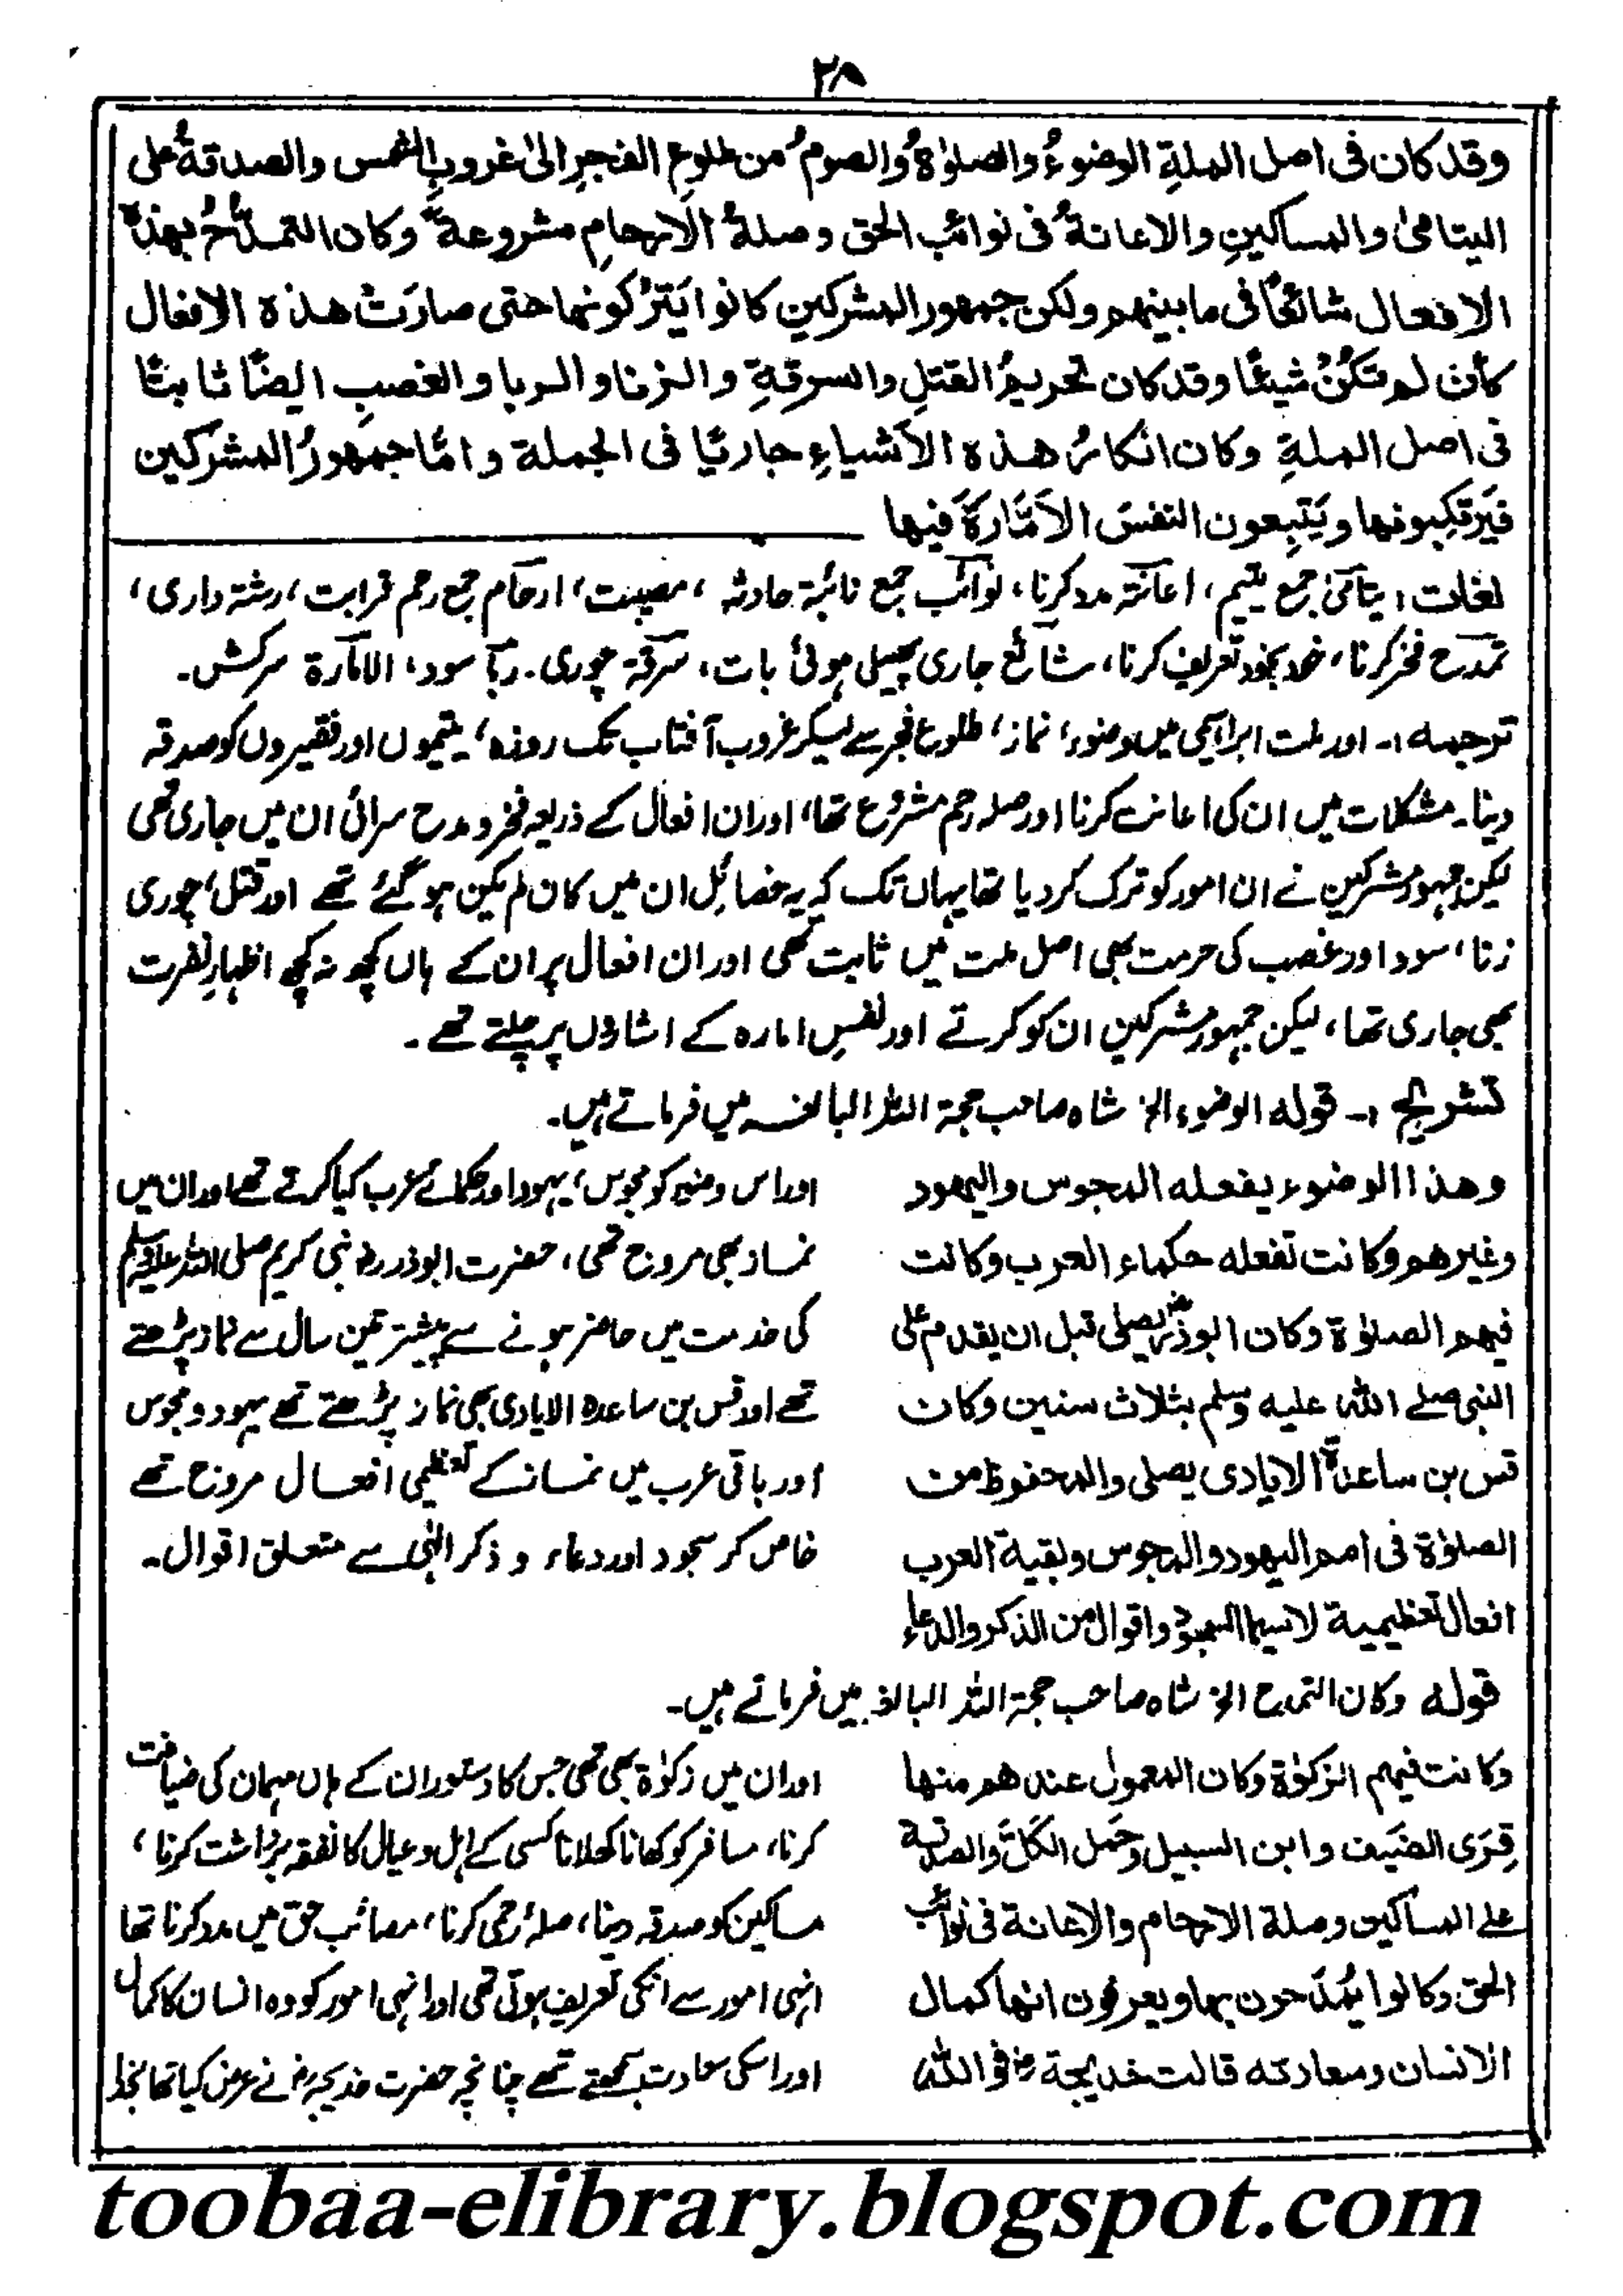 ۲۸
وقد كان فى اصل الملةِ الوضوءُ والصلوٰةُ والصومُ من طلوعِ الفجرِ الىٰ غروبِ الشمس والصدقةُ على
اليتامىٰ والمساكينِ والاعانةُ فى نوائب الحق وصلةُ الارحامِ مشروعة وكان التمدُّحُ بهذه
الافعال شائعًا فى ما بينهم ولكن جمهور المشركين كانوا يَتركونها حتى صارَت هذه الافعال
كأن لم تكُنْ شيئًا وقد كان تحريمُ القتلِ والسرقةِ والزنا والربا والغصبِ ايضًا ثابتًا
فى اصل الملةِ وكان انكارُ هذه الاَشياءِ جاريًا فى الجملة وامّا جمهورُ المشركين
فيَرتكِبونها ويَتبِعون النفسَ الاَمّارةَ فيها
لغات: یتامیٰ جمع یتیم، اعانۃ مدد کرنا، نوائب جمع نائبۃ حادثہ، مصیبت، ارحام جمع رحم قرابت، رشتہ داری،
تمدح فخر کرنا، خود بخود تعریف کرنا، شائع جاری پھیلی ہوئی بات، سرقۃ چوری۔ ربا سود، الامارۃ سرکش۔
ترجمہ :۔ اور ملت ابراہیمی میں وضوء، نماز، طلوع فجر سے لیکر غروب آفتاب تک روزہ، یتیموں اور فقیروں کو صدقہ
دینا۔ مشکلات میں ان کی اعانت کرنا اور صلہ رحم مشروع تھا، اور ان افعال کے ذریعہ فخر و مدح سرائی ان میں جاری تھی
لیکن جمہور مشرکین نے ان امور کو ترک کر دیا تھا یہاں تک کہ یہ خصائل ان میں کان لم یکن ہو گئے تھے اور قتل، چوری
زنا، سود اور غصب کی حرمت بھی اصل ملت میں ثابت تھی اور ان افعال پر ان کے ہاں کچھ نہ کچھ اظہارِ نفرت
بھی جاری تھا، لیکن جمہور مشرکین ان کو کرتے اور نفسِ امارہ کے اشاروں پر چلتے تھے۔
تشریح :۔ قولہ الوضوء الخ شاہ صاحب حجۃ اللہ البالغہ میں فرماتے ہیں۔
وهذا الوضوء يفعله المجوس واليهود
وغيرهم وكانت تفعله حكماء العرب وكانت
فيهم الصلوٰة وكان ابوذرؓ يصلى قبل ان يقدم على
النبى صلے الله عليه وسلم بثلاث سنين وكان
قس بن ساعدة الايادى يصلى والمحفوظ من
الصلوٰة فى امم اليهود والمجوس وبقية العرب
افعال تعظيمية لاسيما السجود واقوال من الذكر والدعاء
اور اس وضوء کو مجوس، یہود اور حکمائے عرب کیا کرتے تھے اور ان میں
نماز بھی مروج تھی، حضرت ابوذرؓ نبی کریم صلی اللہ علیہ وسلم
کی خدمت میں حاضر ہونے سے پیشتر تین سال سے نماز پڑھتے
تھے اور قس بن ساعدہ الایادی بھی نماز پڑھتے تھے یہود و مجوس
اور باقی عرب میں نماز کے تعظیمی افعال مروج تھے
خاص کر سجود اور دعاء و ذکر الٰہی سے متعلق اقوال۔
قولہ وكان التمدح الخ شاہ صاحب حجۃ اللہ البالغہ میں فرماتے ہیں۔
وكانت فيهم الزكوٰة وكان المعمول عندهم منها
قِرَى الضيف وابن السبيل وحَمل الكَلّ والصدقة
علے المساكين وصلة الارحام والاعانة فى نوائب
الحق وكانوا يُمدَحون بها ويعرفون انها كمال
الانسان وسعادته قالت خديجةؓ فوالله
اور ان میں زکوٰۃ بھی تھی جس کا دستور ان کے ہاں مہمان کی ضیافت
کرنا، مسافر کو کھانا کھلانا کسی کے اہل و عیال کا نفقہ برداشت کرنا،
مساکین کو صدقہ دینا، صلۂ رحمی کرنا، مصائب حق میں مدد کرنا تھا
انہی امور سے انکی تعریف ہوتی تھی اور انہی امور کو وہ انسان کا کمال
اور اسکی سعادت سمجھتے تھے چنانچہ حضرت خدیجہؓ نے عرض کیا تھا بخدا
toobaa-elibrary.blogspot.com